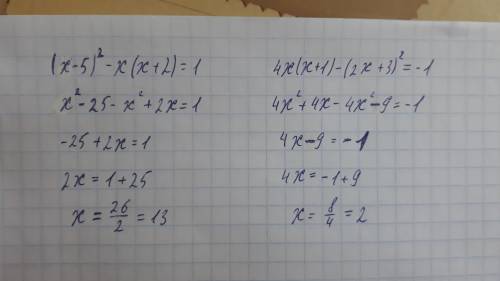 (x-5)² - x(x+2) = 1
x² - 25 - x² + 2x = 1
-25 + 2x = 1
2x = 1 + 25
x = 26/2 = 13
4x(x+1) - (2x+3)² = -1
4x² + 4x - 4x² - 9 = -1
4x - 9 = -1
4x = -1 + 9
x = 8/4 = 2